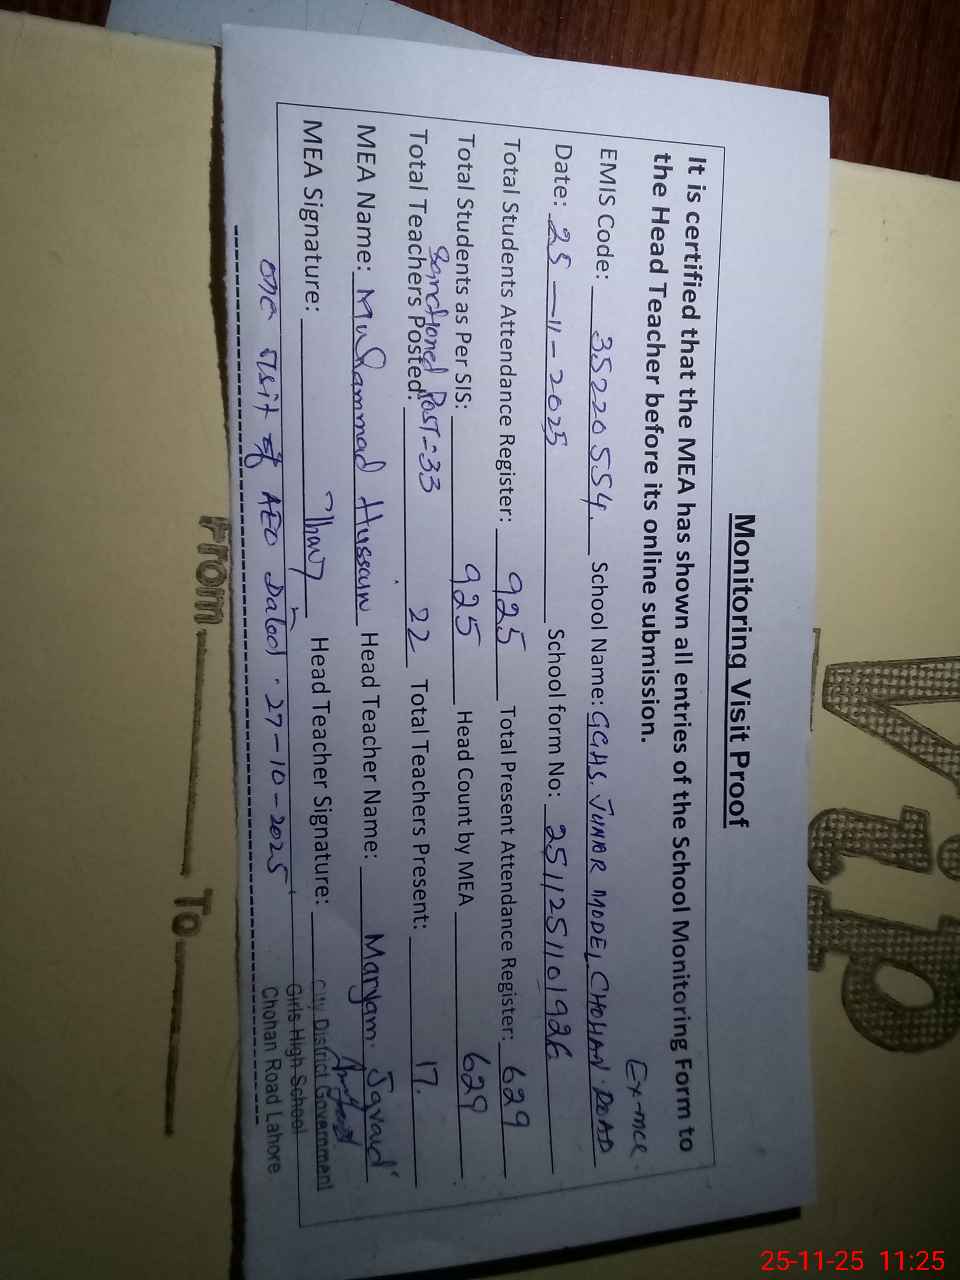 Monitoring Visit Proof
It is certified that the MEA has shown all entries of the School Monitoring Form to
the Head Teacher before its online submission.
Ex-mce.
EMIS Code: 35220554. School Name: GGHS. JUNIOR MODEL CHOHAN ROAD
Date: 25-11-2025 School form No: 251125110192
Total Students Attendance Register: 925 Total Present Attendance Register: 629
Total Students as Per SIS: 925 Head Count by MEA 629
Sanctioned Post=33
Total Teachers Posted: 22 Total Teachers Present: 17.
MEA Name: Muhammad Hussain Head Teacher Name: Maryam Javaid
MEA Signature: Head Teacher Signature:
City District Government
Girls High School
Chohan Road Lahore
one visit of AEO Dated. 27-10-2025
Vip
From To
25-11-25 11:25